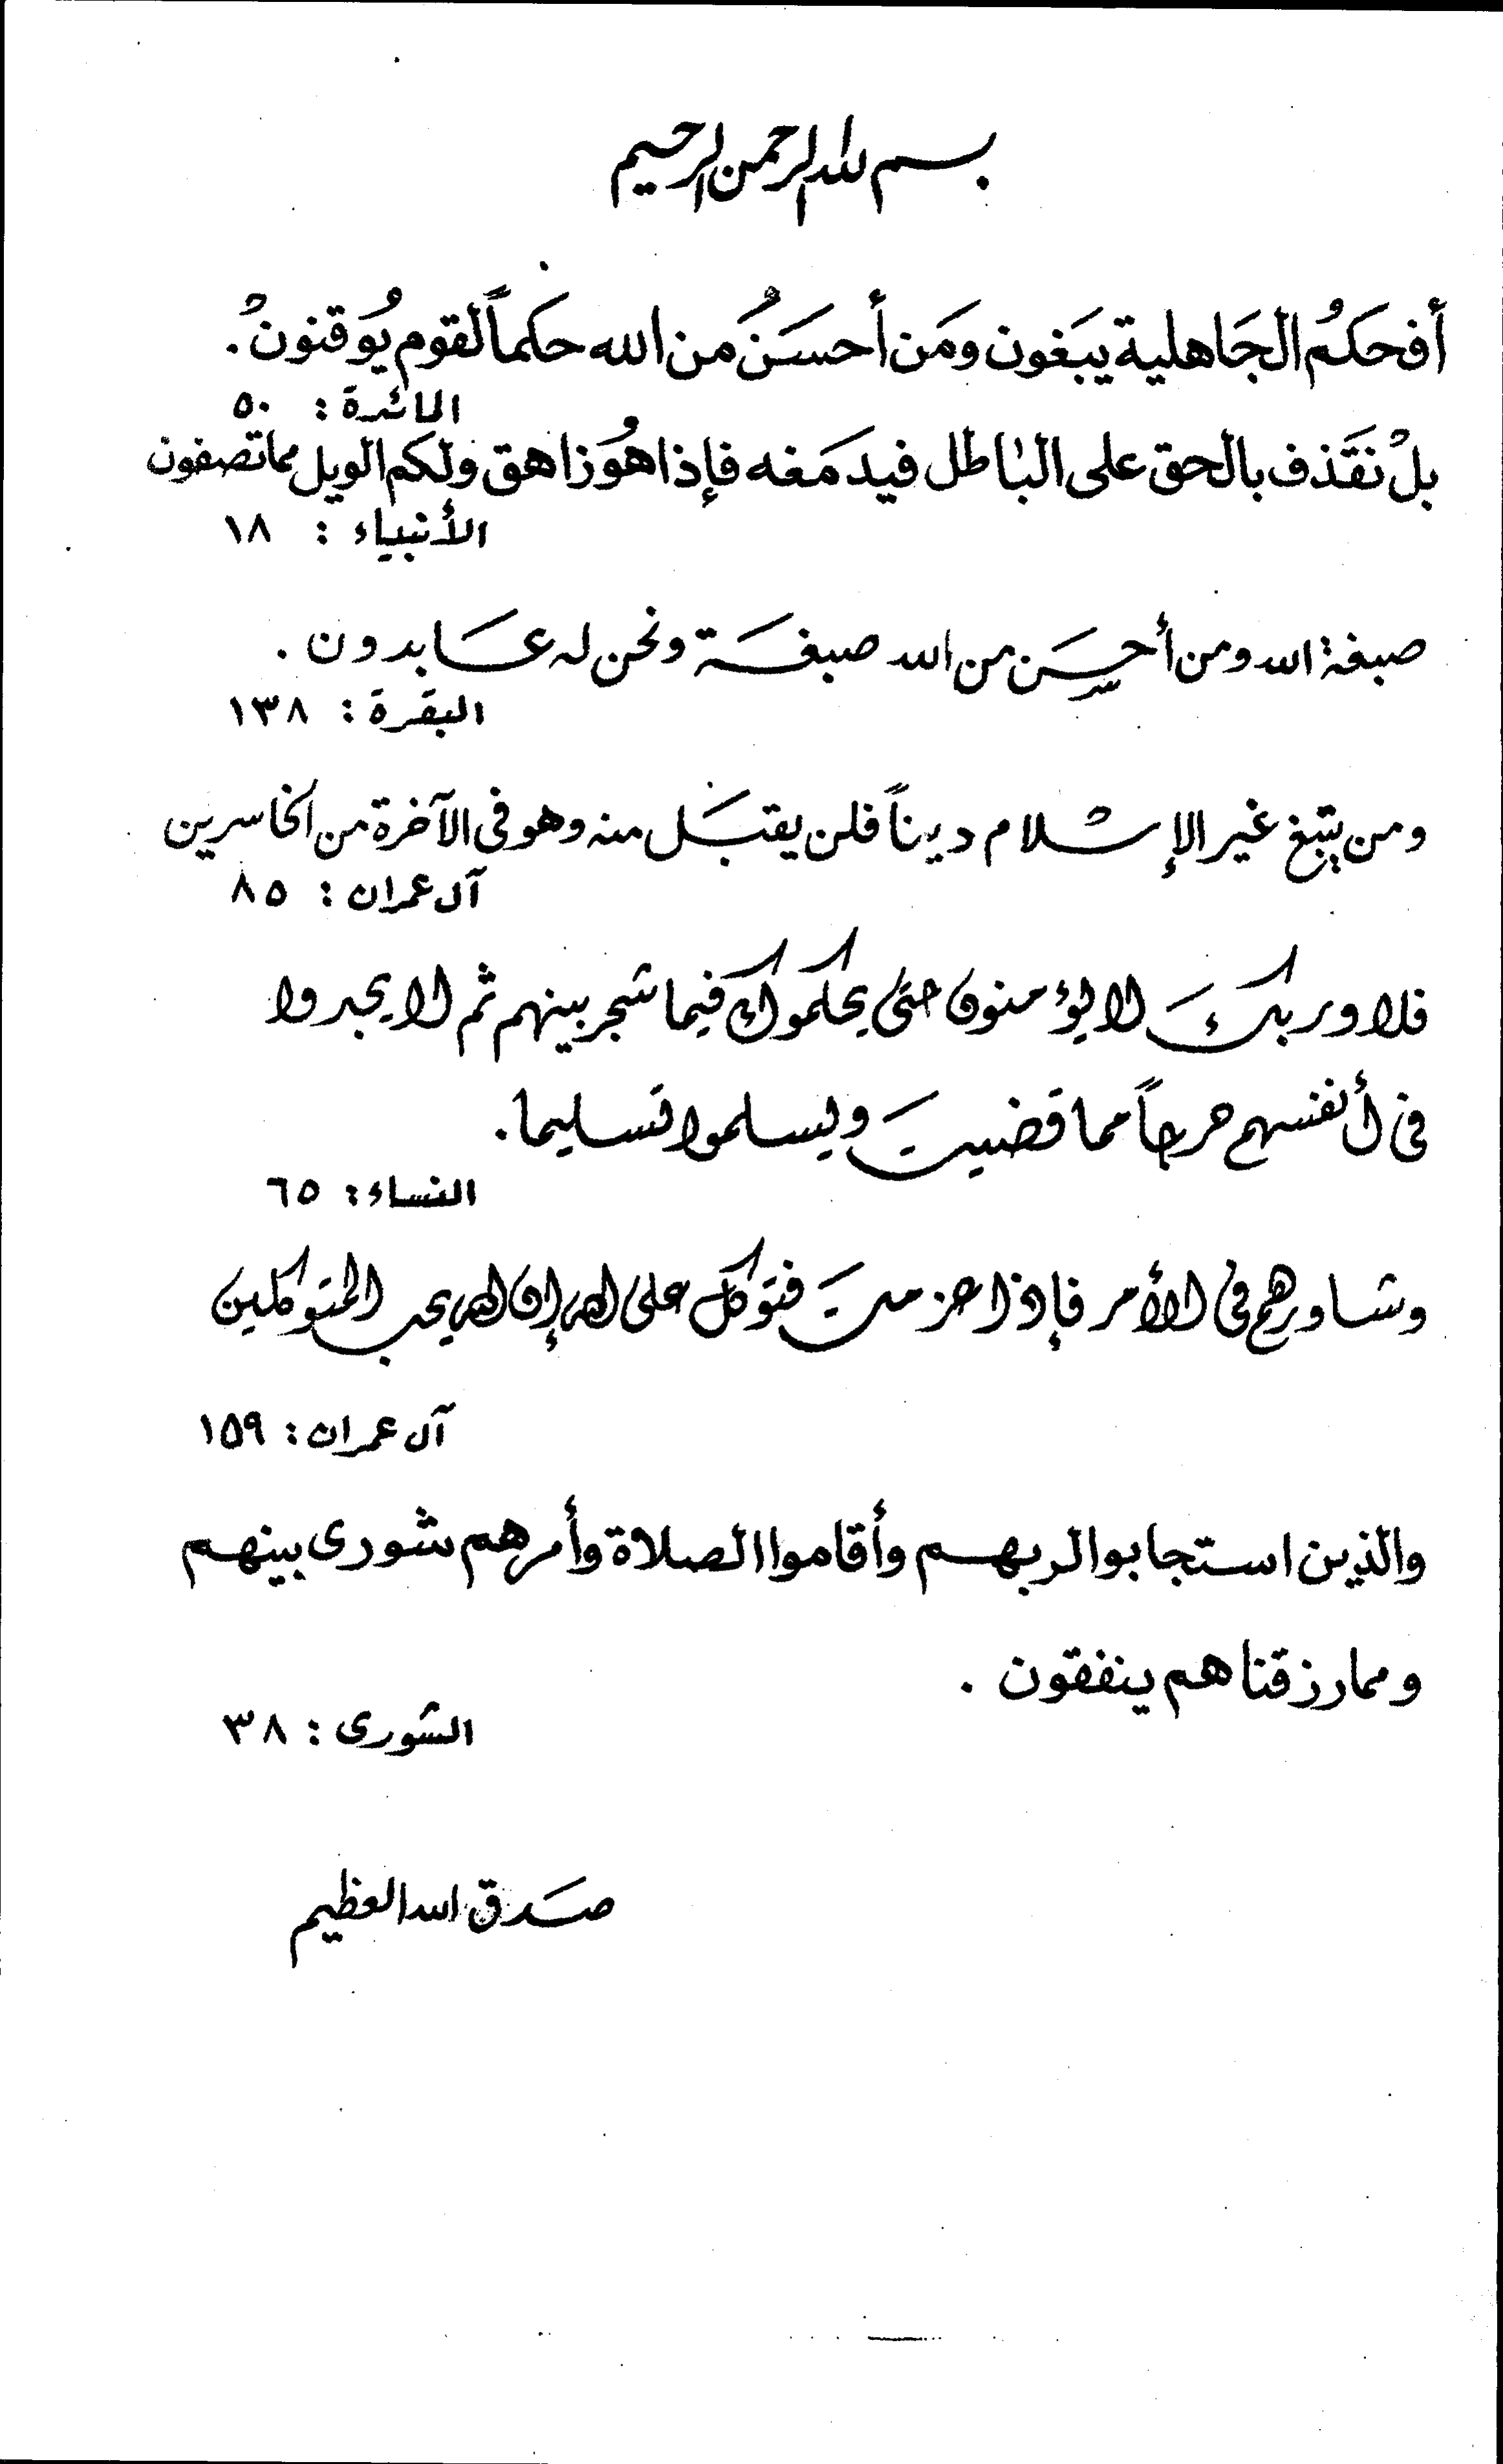 بسم الله الرحمن الرحيم
أفحكمُ الجَاهلية يبَغون ومَن أحسَنُ من الله حكماً لقوم يُوقنونْ .
المائدة : ٥٠
بلْ نقَذف بالحق على البٰاطل فيدمَغه فإذا هُوَ زاهق ولكم الويل مما تصفون
الأنبياء : ١٨
صبغة الله ومن أحسَن من الله صبغَة ونحن له عَابدون .
البقرة : ١٣٨
ومن يبتغ غير الإسلام ديناً فلن يقبَل منه وهو في الآخرة من الخاسرين
آل عمران : ٨٥
فلا وربكَ لا يؤمنون حتى يحكموك فيما شجر بينهم ثم لا يجدوا
في أنفسهم حرجاً مما قضيتَ ويسلموا تسليما .
النساء : ٦٥
وشاورهم في الأمر فإذا عزمتَ فتوكل على الله إن الله يحب المتوكلين
آل عمران : ١٥٩
والذين استجابوا لربهم وأقاموا الصلاة وأمرهم شورى بينهم
ومما رزقناهم ينفقون .
الشورى : ٣٨
صَدق الله العظيم